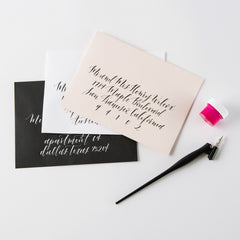 Mr and Mrs Henry Wilcox
1774 Maple Boulevard
San Francisco California
9 4 1 0 2
apartment 64
dallas texas 75214